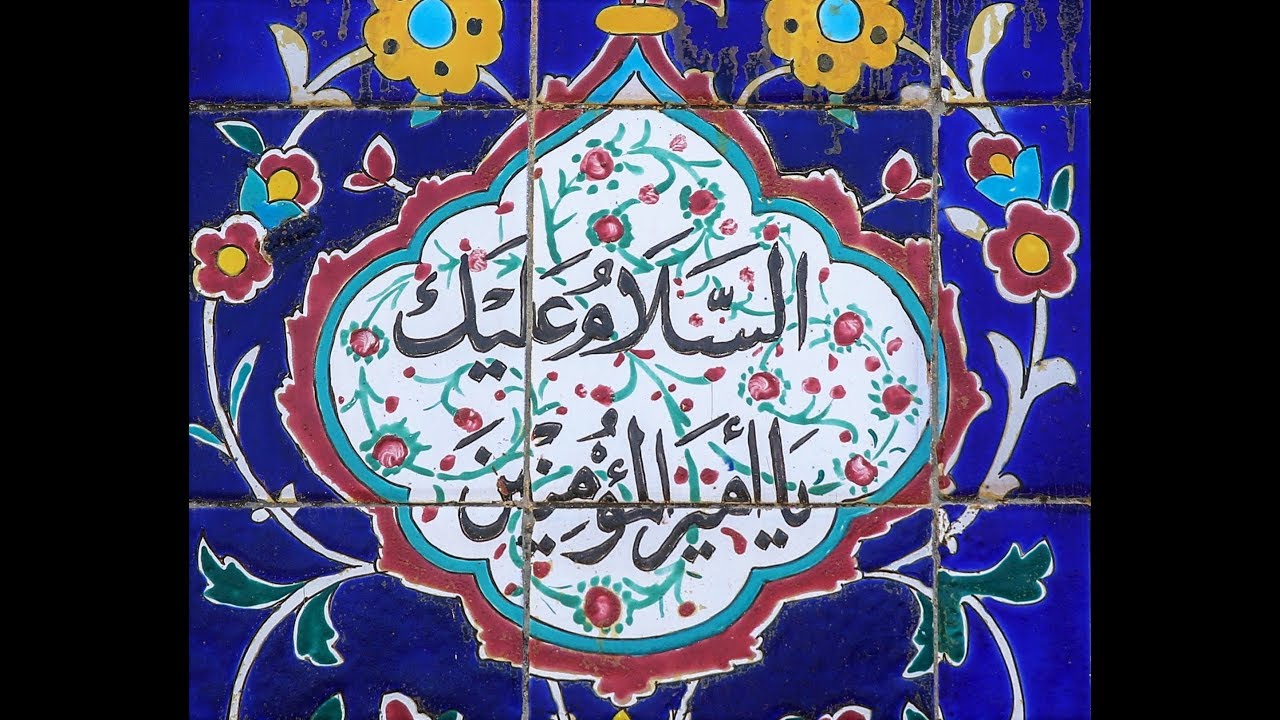 السَّلَامُ عَلَيْكَ
يَا أَمِيرَ الْمُؤْمِنِيْنَ